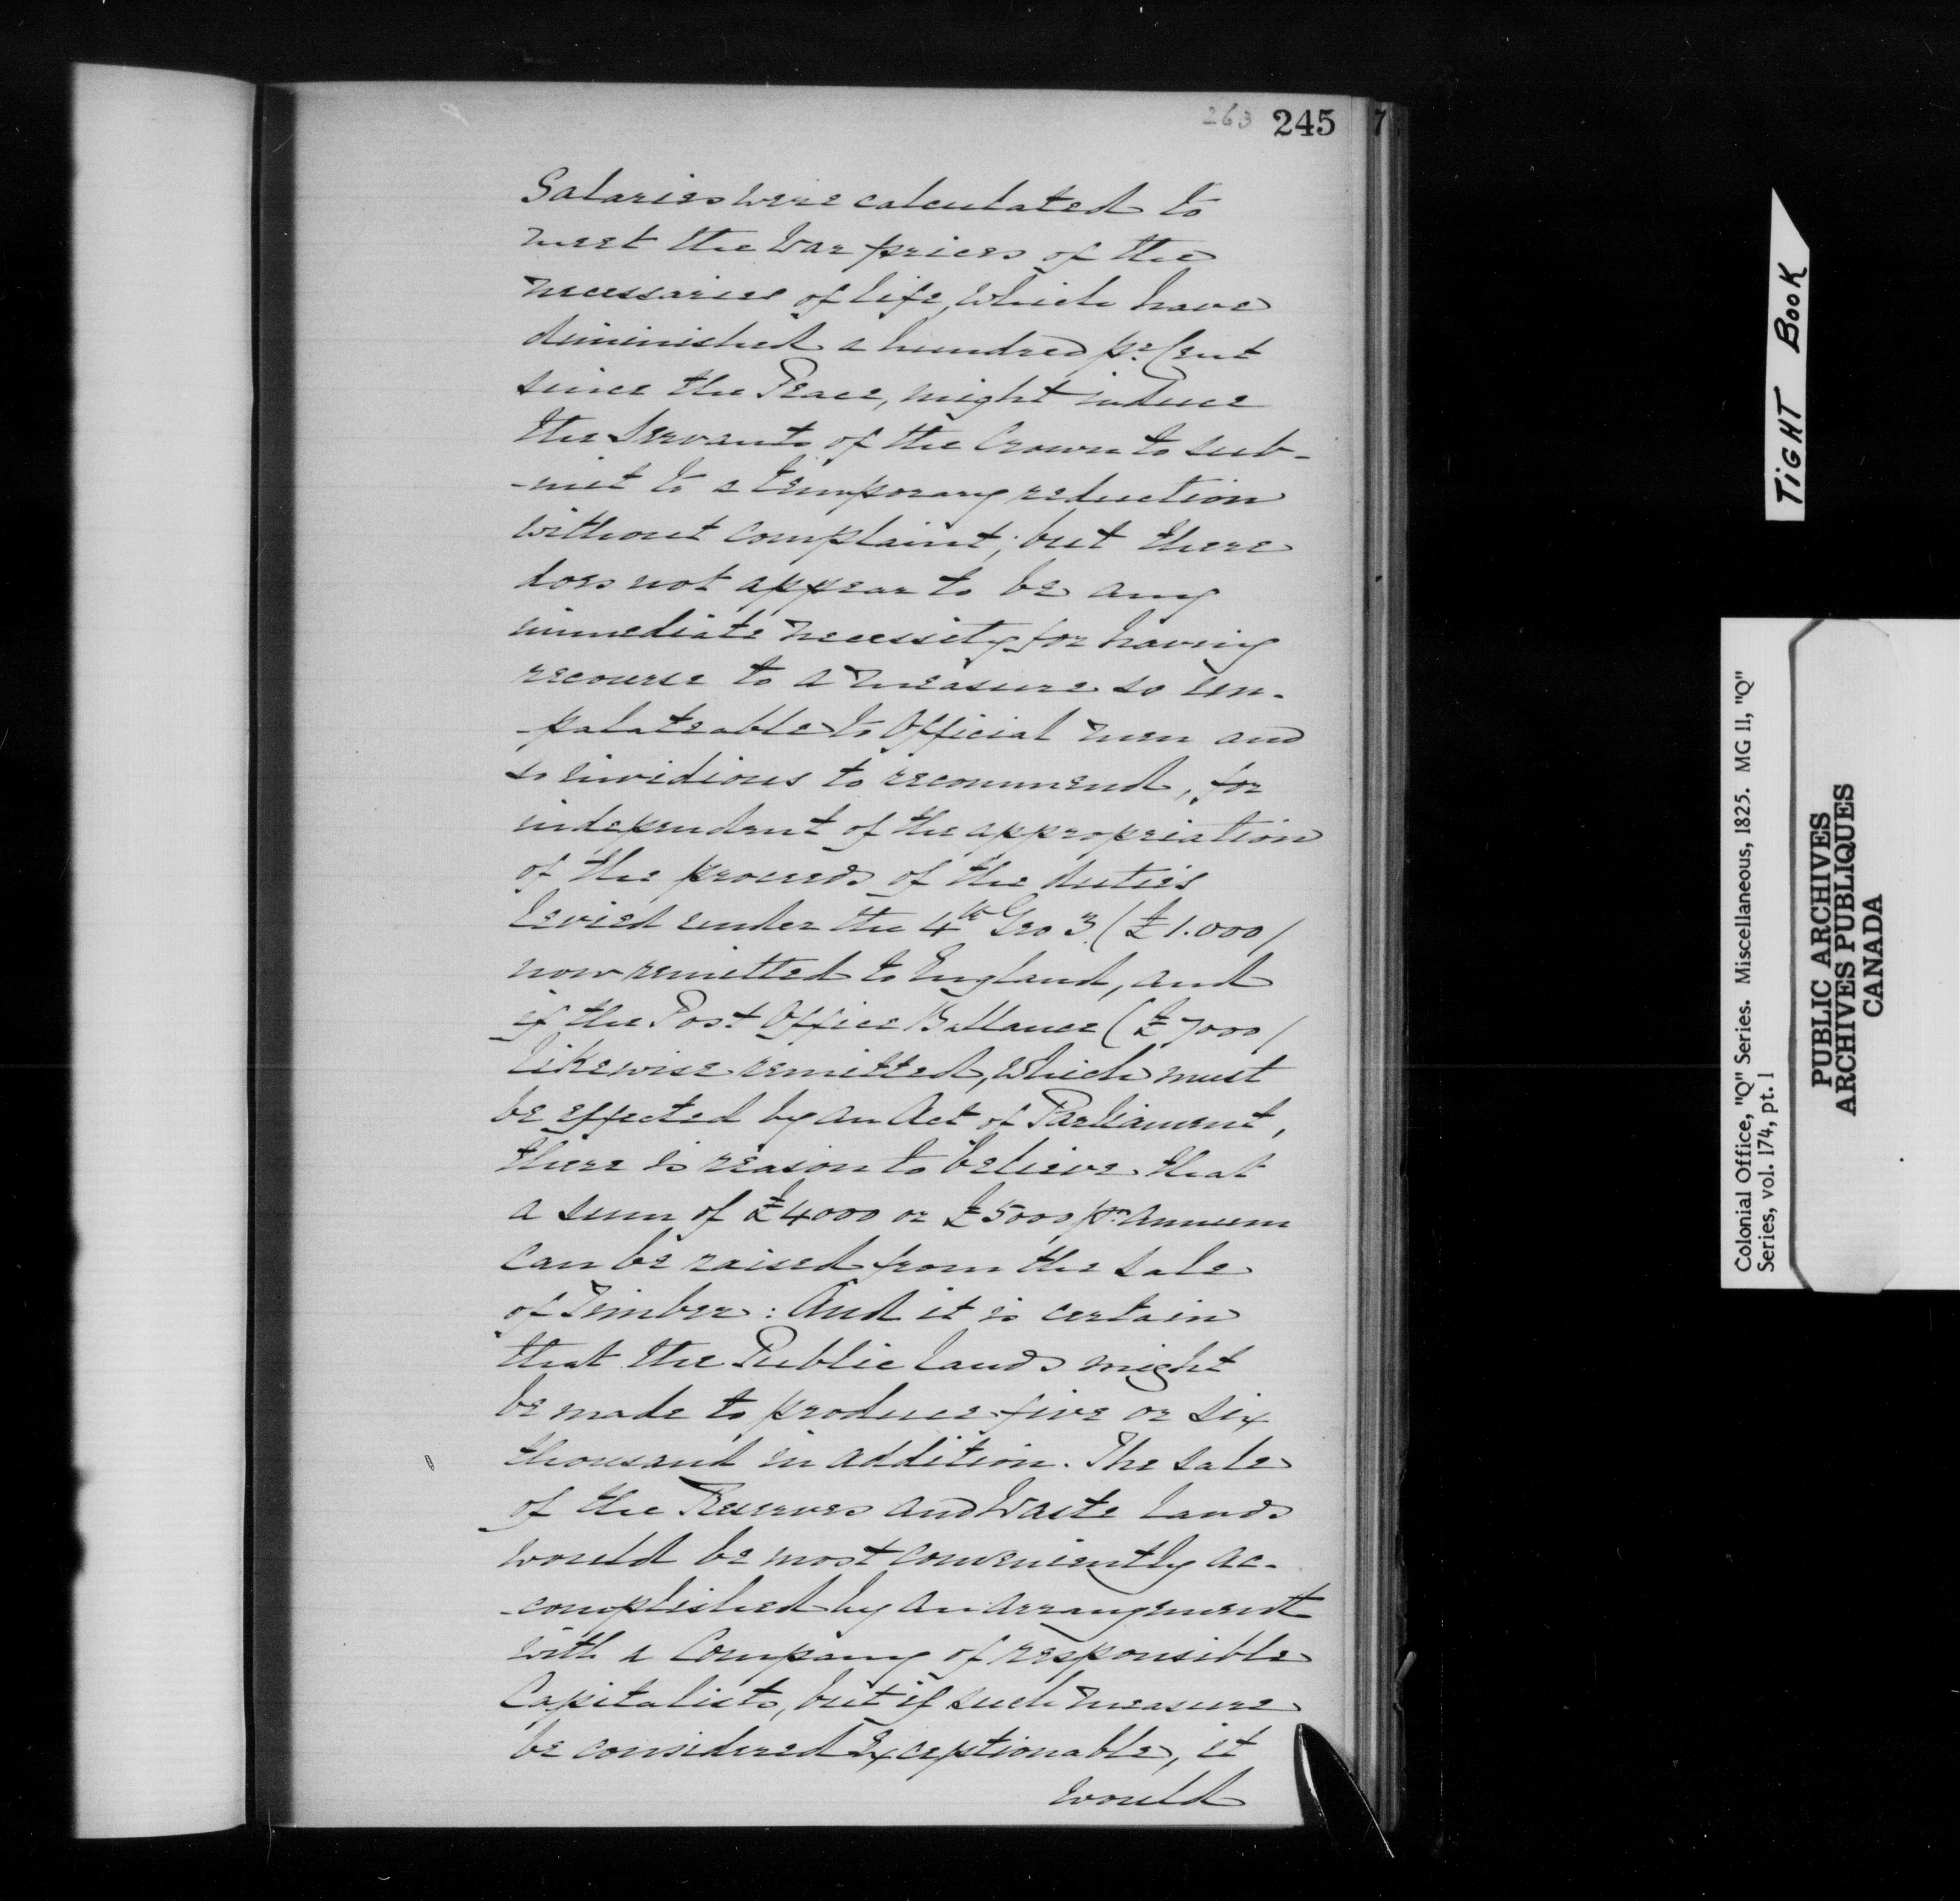 263 245
Salaries were calculated to
meet the War prices of the
necessaries of life, which have
diminished a hundred pr Cent
since the Peace, might induce
the Servants of the Crown to sub-
-mit to a temporary reduction
without complaint; but there
does not appear to be any
immediate necessity for having
recourse to a measure so un-
-palateable to Official men and
so invidious to recommend, for
independent of the appropriation
of the proceeds of the duties
levied under the 4th Geo 3. (£1.000/
now remitted to England, and
if the Post Office Ballance (£7000/
likewise remitted, which must
be effected by an Act of Parliament,
there is reason to believe that
a sum of £4000 or £5000 pr annum
can be raised from the sale
of Timber: And it is certain
that the Public lands might
be made to produce five or six
thousand in addition. The sale
of the Reserves and Waste lands
would be most conveniently ac-
-complished by an arrangement
with a Company of responsible
Capitalists, but if such measure
be considered exceptionable, it
would
TIGHT BOOK
Colonial Office, "Q" Series. Miscellaneous, 1825. MG 11, "Q"
Series, vol. 174, pt. 1
PUBLIC ARCHIVES
ARCHIVES PUBLIQUES
CANADA
7